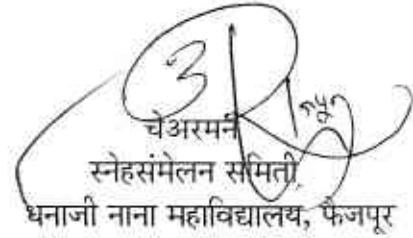 चेअरमन
स्नेहसंमेलन समिती,
धनाजी नाना महाविद्यालय, फैजपूर